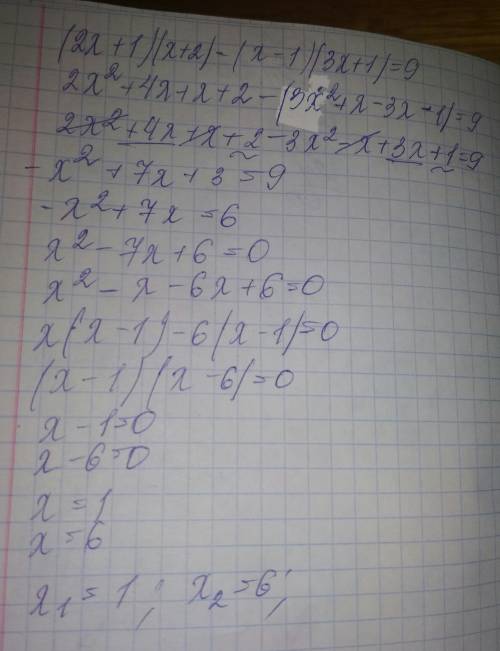 (2x+1)(x+2)-(x-1)(3x+1)=9
2x²+4x+x+2-(3x²+x-3x-1)=9
2x²+4x+x+2-3x²-x+3x+1=9
-x²+7x+3=9
-x²+7x=6
x²-7x+6=0
x²-x-6x+6=0
x(x-1)-6(x-1)=0
(x-1)(x-6)=0
x-1=0
x-6=0
x=1
x=6
x₁=1; x₂=6;